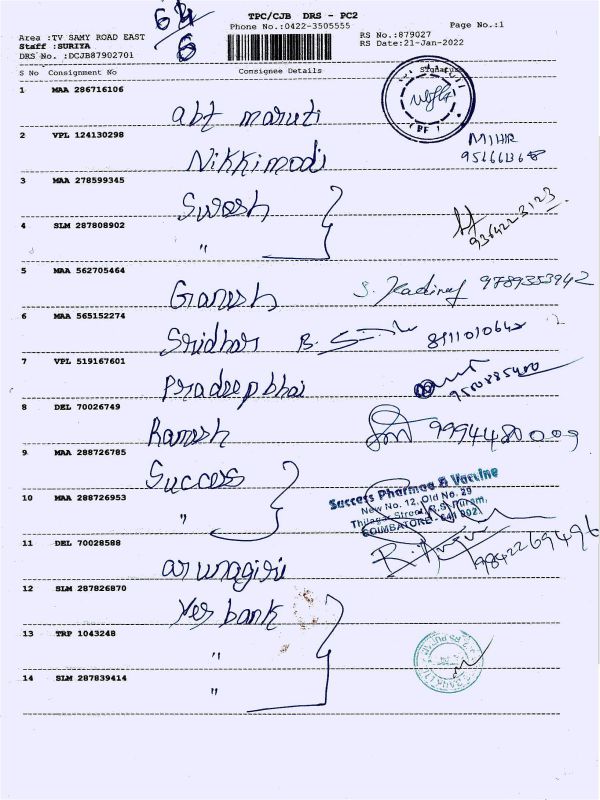 TPC/CJB DRS - PC2
Phone No.:0422-3505555
Page No.:1
Area :TV SAMY ROAD EAST
Staff :SURIYA
DRS No. :DCJB87902701
RS No.:879027
RS Date:21-Jan-2022
64/6
S No Consignment No Consignee Details Signature
1 MAA 286716106
abt maruti
2 VPL 124130298
Nikkimodi MIHIR
3 MAA 278599345
Suresh 9364223123
4 SLM 287808902
"
5 MAA 562705464
Ganesh 9789353942
6 MAA 565152274
Sridhar B.
7 VPL 519167601
Pradeepbhai
8 DEL 70026749
Ramesh
9 MAA 288726785
Success
Success Pharma & Vaccine
New No. 12, Old No. 29
Thilagar Street, R.S. Puram,
COIMBATORE - 641 002
10 MAA 288726953
"
11 DEL 70028588
arunagiri 9842269496
12 SLM 287826870
Yes bank
13 TRP 1043248
"
14 SLM 287839414
"